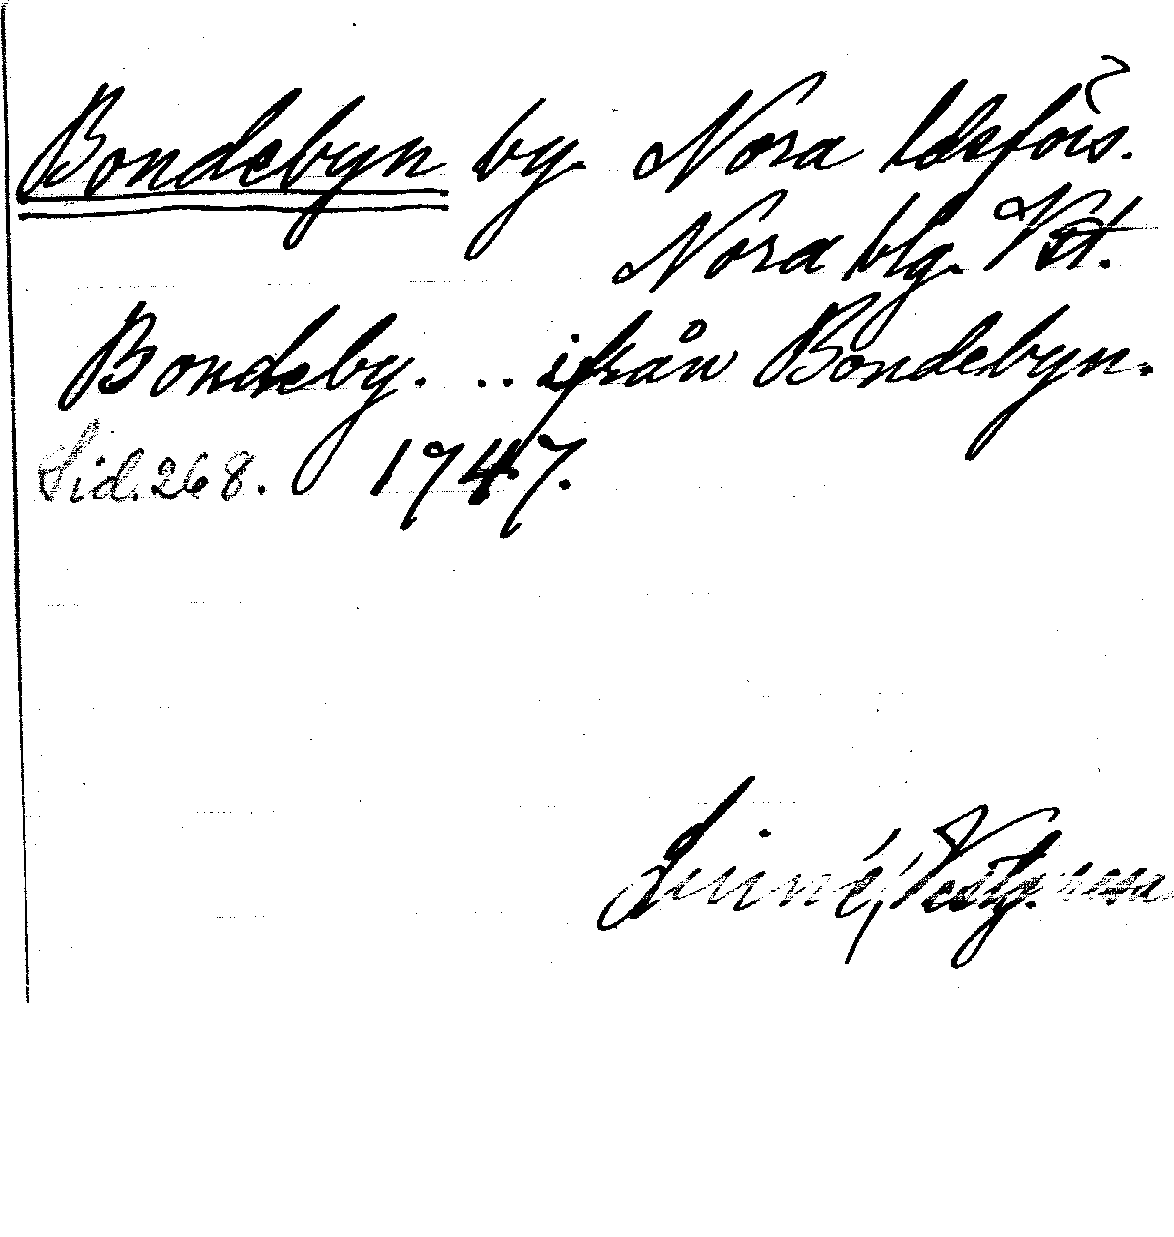 Bondebyn by. Nora ldsförs.
Nora blg. Vstl.
Bondeby. .. ifrån Bondebyn.
Sid. 268. 1747.
Linné, Vestg. resa